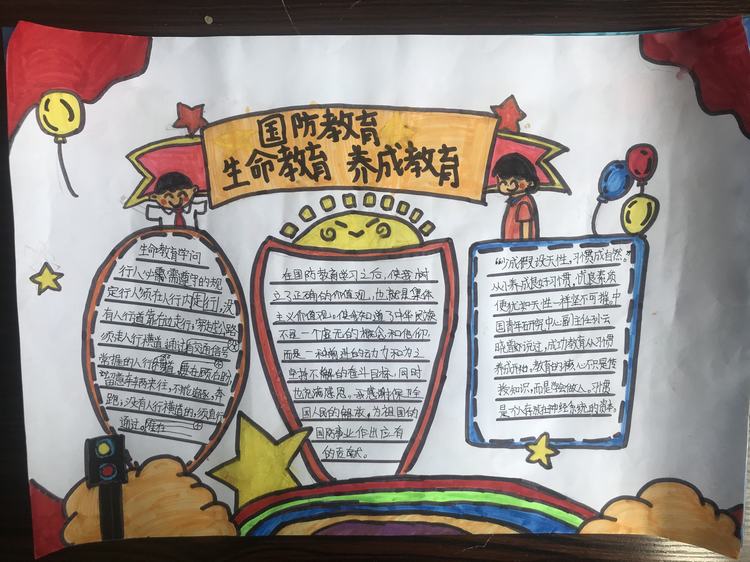 国防教育
生命教育 养成教育
生命教育学问
行人必需需遵守的规
定行人须在人行内走行,没
有人行道靠右边走行;穿越马路
须走人行横道;通过有交通信号
掌握的人行横道
留意车辆来往,不能追逐、奔
跑;没有人行横道的,须直行
通过。
在国防教育学习之后,使我树
立了正确的价值观,也就是集体
主义价值观,使我知道了中华民族
不是一个虚无的概念和信仰,
而是一种奋斗的动力和为之
坚持不懈的奋斗目标,同时
也充满感恩。我感谢保卫全
国人民的解放,为祖国的
国防事业作出应有
的贡献。
“少成假设天性,习惯成自然。”
从小养成良好习惯,优良素质
便犹如天性一样坚不可摧。中
国青年研究中心副主任孙云
晓喜好说过,成功教育从习惯
养成开始。教育的核心不只是传
授知识,而是学会做人。习惯
是个人存放在神经系统的资本。